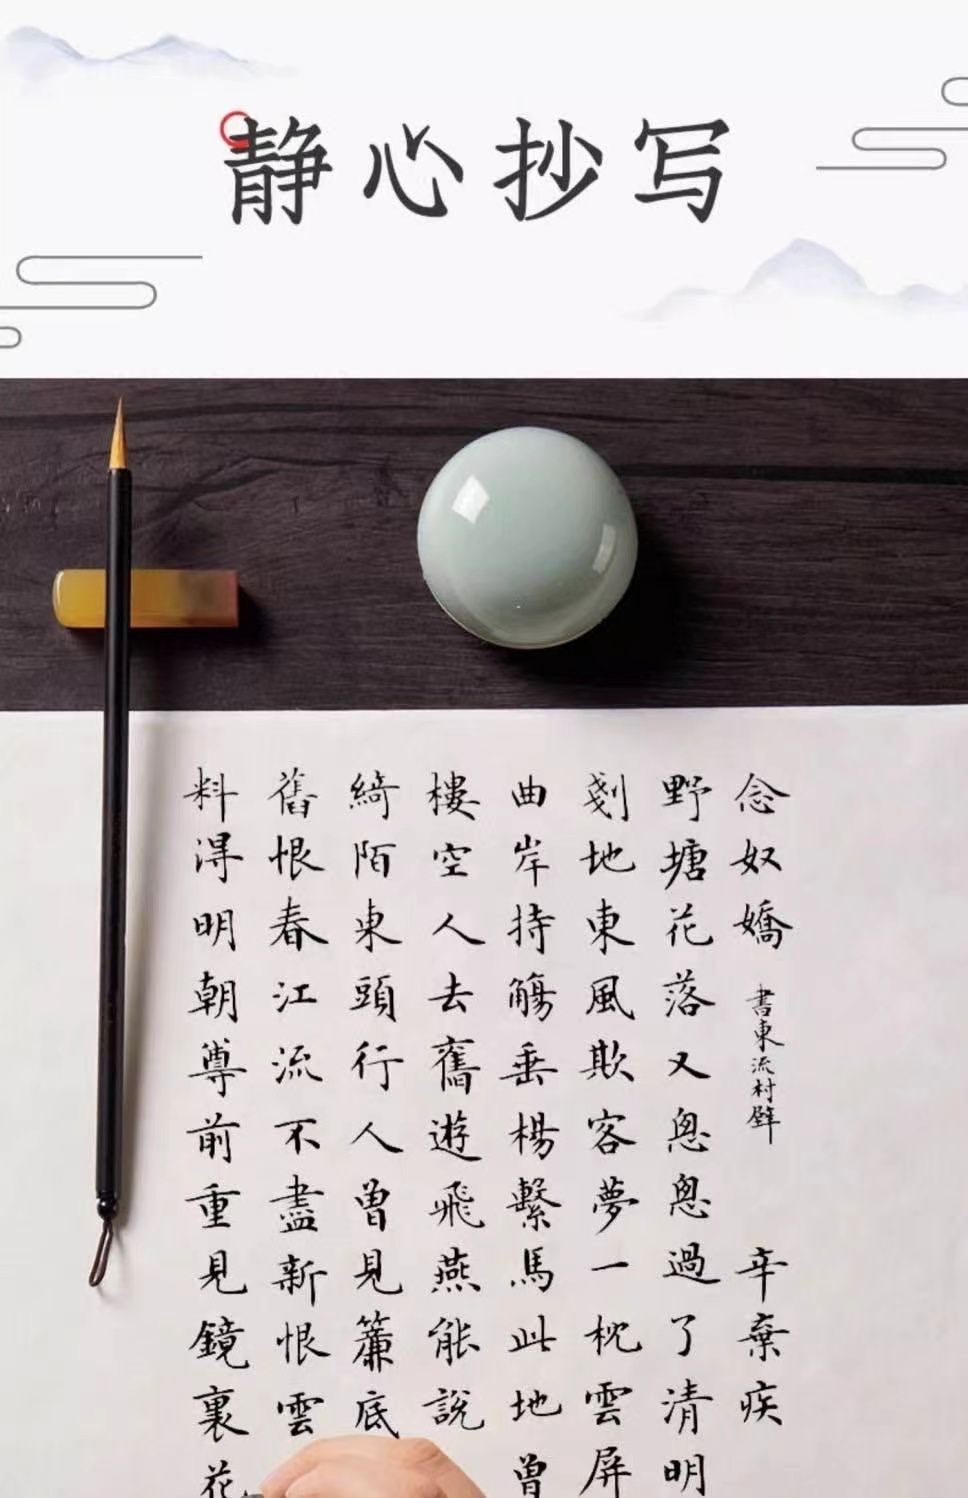 静心抄写
念奴嬌 書東流村壁 辛棄疾
野塘花落又悤悤過了清明
剗地東風欺客夢一枕雲屏
曲岸持觴垂楊繫馬此地曾
樓空人去舊遊飛燕能說
綺陌東頭行人曾見簾底
舊恨春江流不盡新恨雲
料得明朝尊前重見鏡裏花